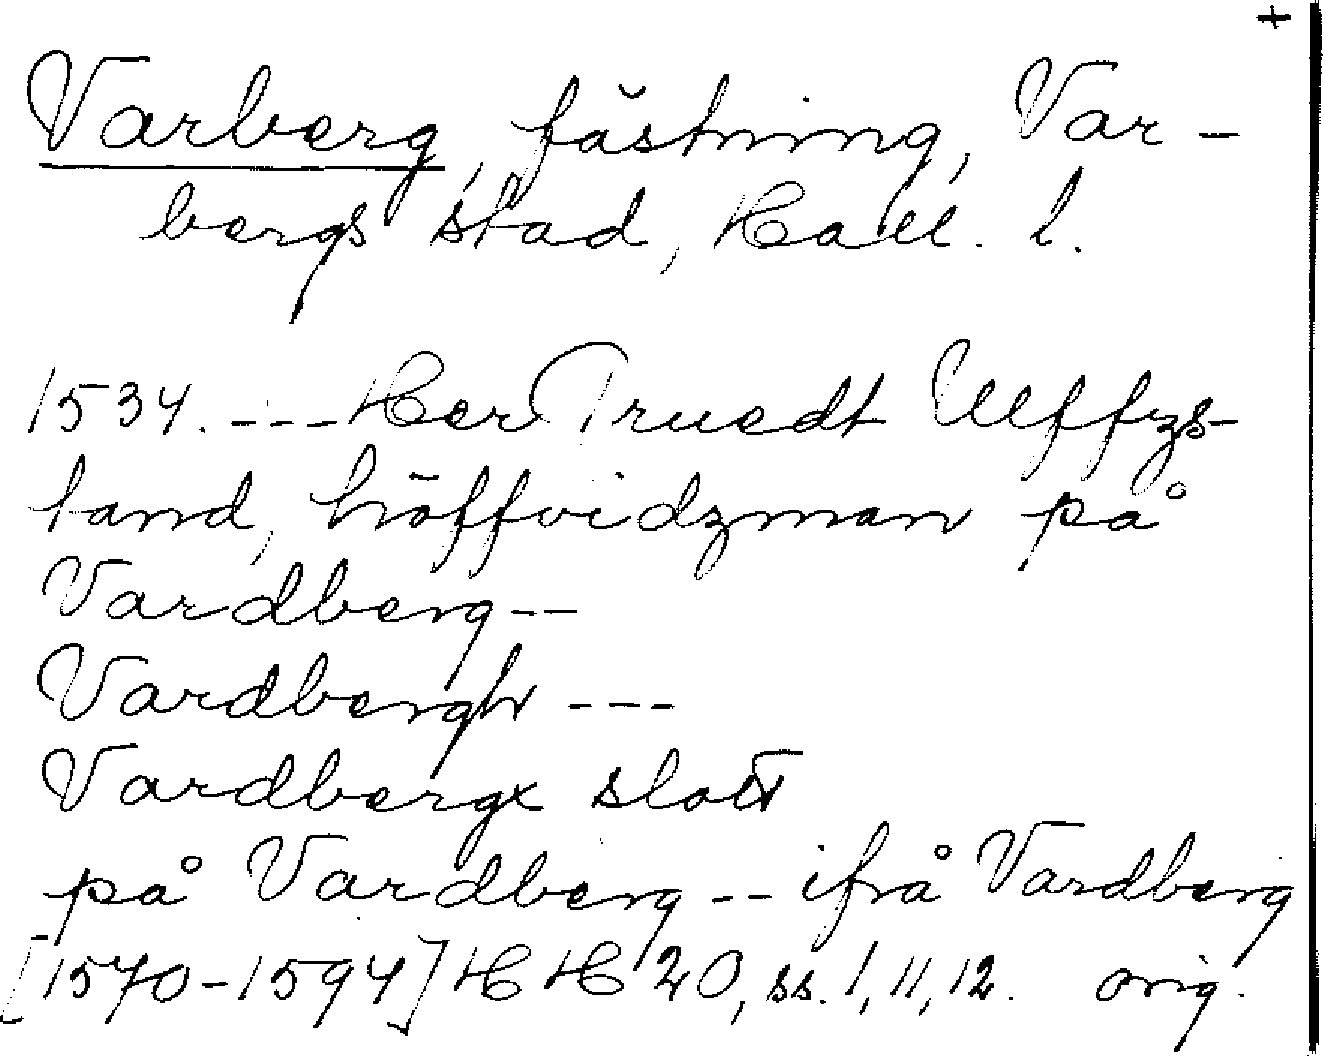 +
Varberg, fästning, Var-
bergs stad, Hall. l.
1534. --- Her Truedt Ulffzs-
tand, höffvidzman på
Vardberg --
Vardbergh ---
Vardbergx slott
på Vardberg -- ifrå Vardberg
[1570-1594] HH 20, ss. 1, 11, 12. orig.